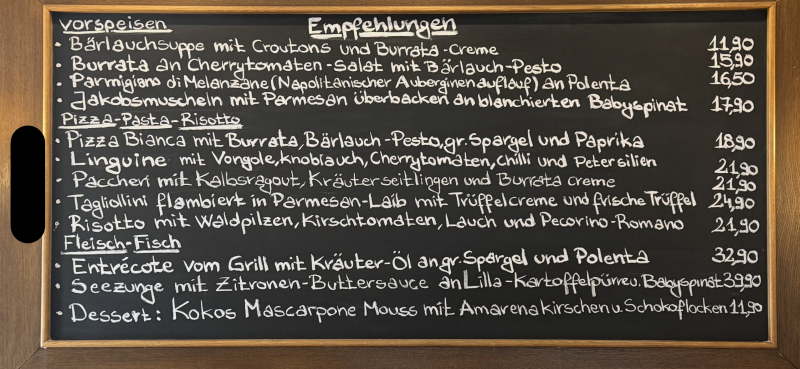 Vorspeisen Empfehlungen
• Bärlauchsuppe mit Croutons und Burrata-Creme 11,90
• Burrata an Cherrytomaten-Salat mit Bärlauch-Pesto 15,90
• Parmigiano di Melanzane (Napolitanischer Auberginenauflauf) an Polenta 16,50
• Jakobsmuscheln mit Parmesan überbacken an blanchierten Babyspinat 17,90
Pizza-Pasta-Risotto
• Pizza Bianca mit Burrata, Bärlauch-Pesto, gr. Spargel und Paprika 18,90
• Linguine mit Vongole, knoblauch, Cherrytomaten, Chilli und Petersilien 21,90
• Paccheri mit Kalbsragout, Kräuterseitlingen und Burrata creme 21,90
• Tagliollini flambiert in Parmesan-Laib mit Trüffelcreme und frische Trüffel 24,90
• Risotto mit Waldpilzen, Kirschtomaten, Lauch und Pecorino-Romano 21,90
Fleisch-Fisch
• Entrécote vom Grill mit Kräuter-Öl an gr. Spargel und Polenta 32,90
• Seezunge mit Zitronen-Buttersauce an Lilla-Kartoffelpürre u. Babyspinat 39,90
• Dessert: Kokos Mascarpone Mouss mit Amarenakirschen u. Schokoflocken 11,90